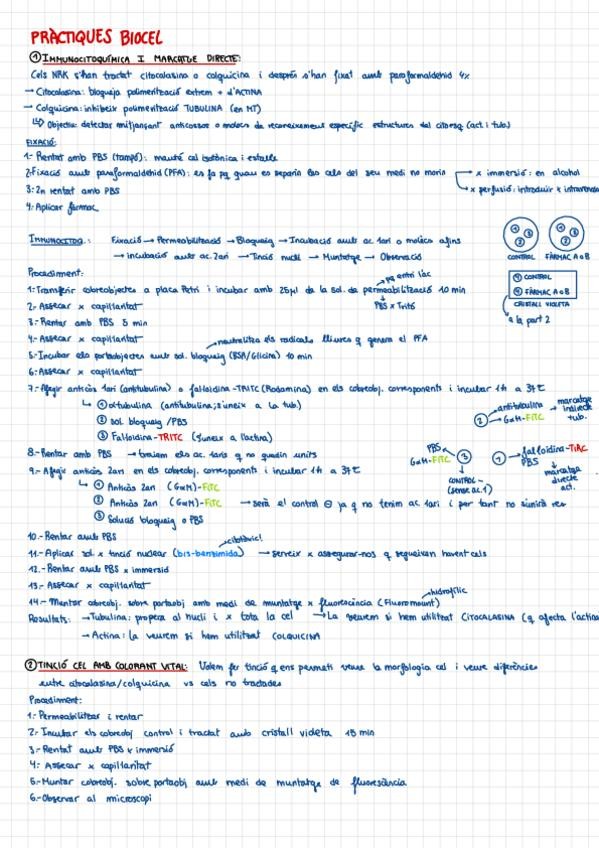 PRÀCTIQUES BIOCEL
① IMMUNOCITOQUÍMICA I MARCATGE DIRECTE:
Cels NRK s'han tractat citocalasina o colquicina i després s'han fixat amb paraformaldehid 4%
→ Citocalasina: bloqueja polimerització extrem + d'ACTINA
→ Colquicina: inhibeix polimerització TUBULINA (en MT)
↳ Objectiu: detectar mitjançant anticossos o molècs de reconeixement específic estructures del citoesq (act i tub)
FIXACIÓ:
1- Rentat amb PBS (tampó): manté cel isotònica i estable
2- Fixació amb paraformaldehid (PFA): es fa pq quan es separin les cels del seu medi no morin
→ x immersió: en alcohol
→ x perfusió: introduir x intravenosa
3- 2n rentat amb PBS
4- Aplicar fàrmac
IMMUNOCITOQ.: Fixació → Permeabilització → Bloqueig → Incubació amb ac 1ari o molècs afins
→ incubació amb ac 2ari → Tinció nucli → Muntatge → Observació
① ③ ②
① ③ ②
CONTROL FÀRMAC A o B
① CONTROL
② FÀRMAC A o B
CRISTALL VIOLETA
a la part 2
Procediment:
pq entri l'ac
1- Transferir cobreobjectes a placa Petri i incubar amb 25μl de la sol. de permeabilització 10 min
PBS x Tritó
2- Assecar x capil·laritat
3- Rentar amb PBS 5 min
4- Assecar x capil·laritat
neutralitza els radicals lliures q genera el PFA
5- Incubar els portaobjectes amb sol. bloqueig (BSA/Glicina) 10 min
6- Assecar x capil·laritat
7- Afegir anticòs 1ari (antitubulina) o fal·loidina-TRITC (Rodamina) en els cobreobj. corresponents i incubar 1h a 37ºC
↳ ① αtubulina (antitubulina; s'uneix a la tub.)
② Sol bloqueig/PBS
③ Fal·loidina-TRITC (s'uneix a l'actina)
② antitubulina GαM-FITC → marcatge indirecte tub.
PBS GαM-FITC ③ CONTROL - (sense ac.1)
① fal·loidina-TRITC PBS → marcatge directe act.
8- Rentar amb PBS → traiem els ac. 1aris q no quedin units
9- Afegir anticòs 2ari en els cobreobj. corresponents i incubar 1h a 37ºC
↳ ① Anticòs 2ari (GαM)-FITC
② Anticòs 2ari (GαM)-FITC → serà el control ⊖ ja q no tenim ac 1ari i per tant no s'unirà res
③ Solució bloqueig o PBS
10- Rentar amb PBS
citotòxic!
11- Aplicar sol. x tinció nuclear (bis-benzimida) → serveix x assegurar-nos q segueixen havent cels
12- Rentar amb PBS x immersió
13- Assecar x capil·laritat
hidrofílic
14- Muntar cobreobj. sobre portaobj amb medi de muntatge x fluorescència (Fluoromount)
Resultats: → Tubulina: propera al nucli i x tota la cel → La veurem si hem utilitzat CITOCALASINA (q afecta l'actina
→ Actina: la veurem si hem utilitzat COLQUICINA
② TINCIÓ CEL AMB COLORANT VITAL: Volem fer tinció q ens permeti veure la morfologia cel i veure diferències
entre citocalasina/colquicina vs cels no tractades
Procediment:
1- Permeabilitzar i rentar
2- Incubar els cobreobj control i tractat amb cristall violeta 15 min
3- Rentat amb PBS x immersió
4- Assecar x capil·laritat
5- Muntar cobreobj. sobre portaobj amb medi de muntatge de fluorescència
6- Observar al microscopi